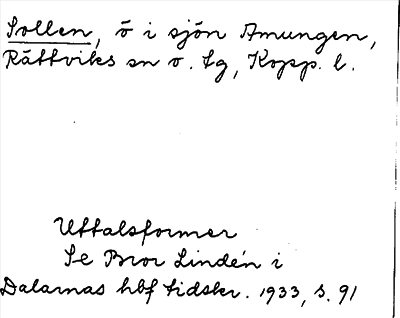 Sollen, ö i sjön Amungen,
Rättviks sn o. tg, Kopp. l.
Uttalsformer
Se Bror Lindén i
Dalarnas hbf tidskr. 1933, s. 91